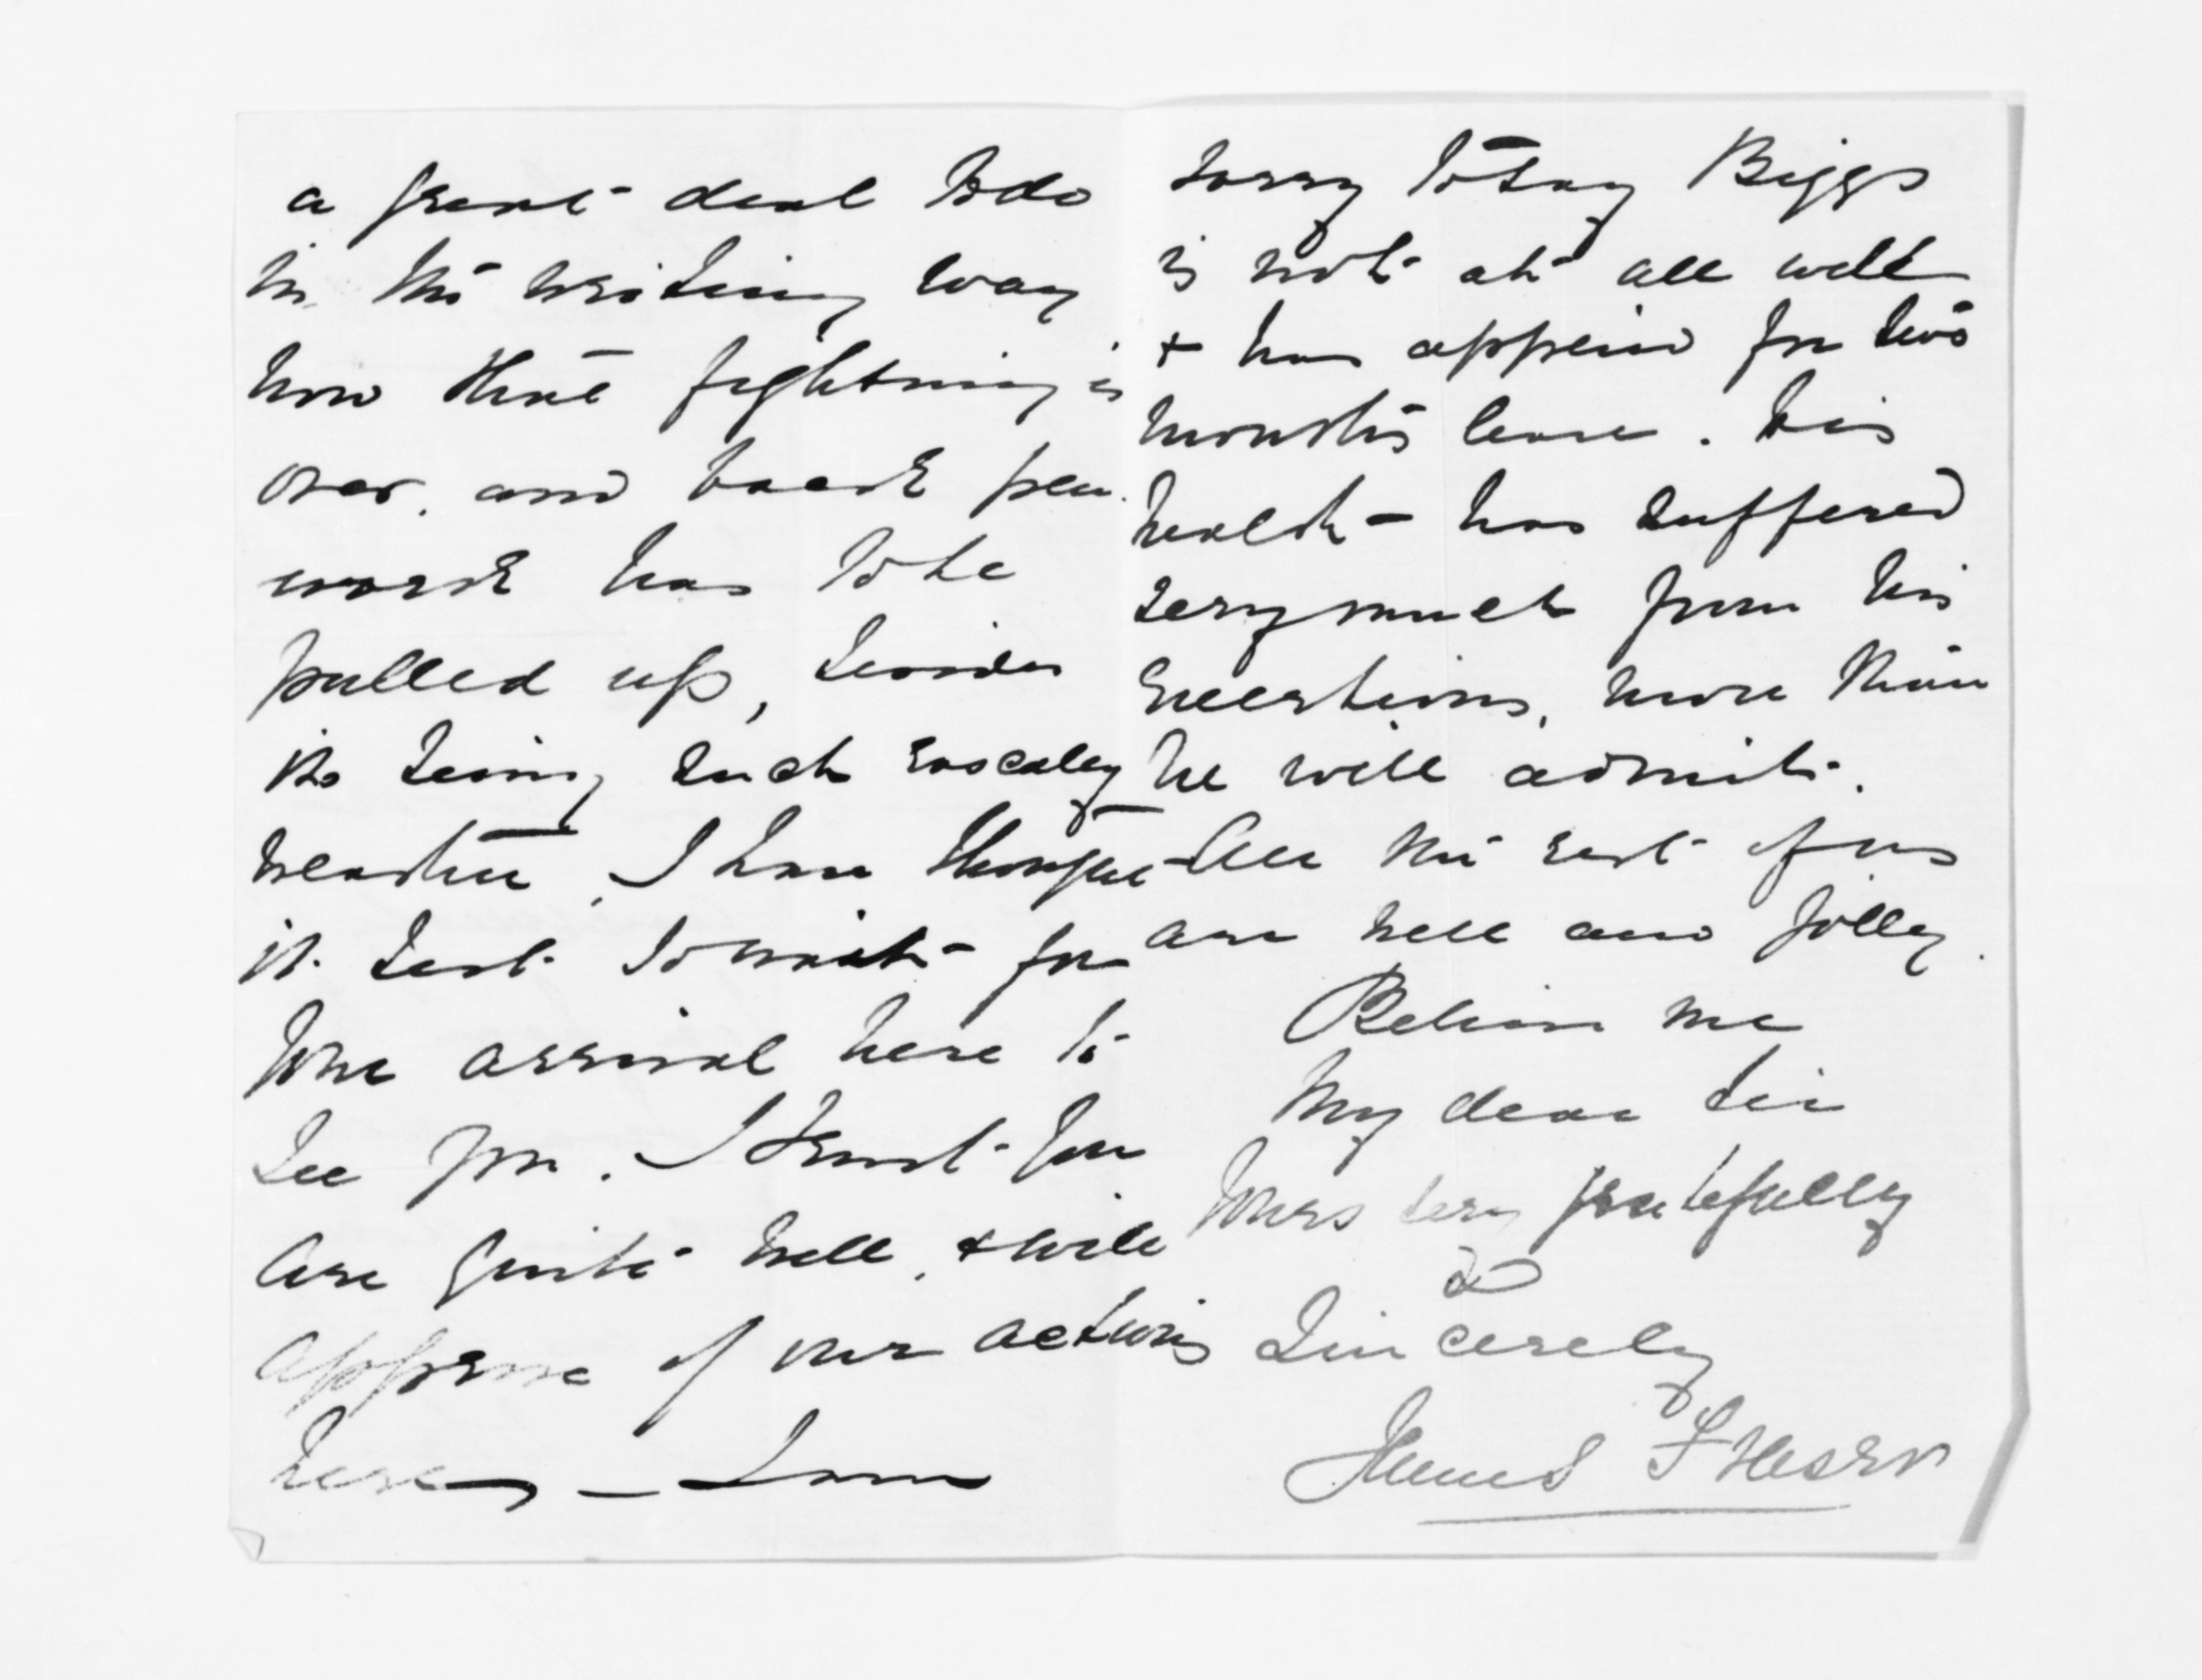 a great deal to do
in the writing way
now that fighting is
over, and back pen
work has to be
pulled up, besides
its being such rascaley
weather, I have thought
it best to wait for
your arrival here to
see you. I trust you
are quite well, & will
approve of our actions
here, — I am
sorry to say Biggs
is not at all well
& has applied for two
months leave. His
health has suffered
very much from his
exertions, more than
he will admit.
All the rest of us
are well and jolly.
Believe me
My dear Sir
Yours very gratefully
&
Sincerely